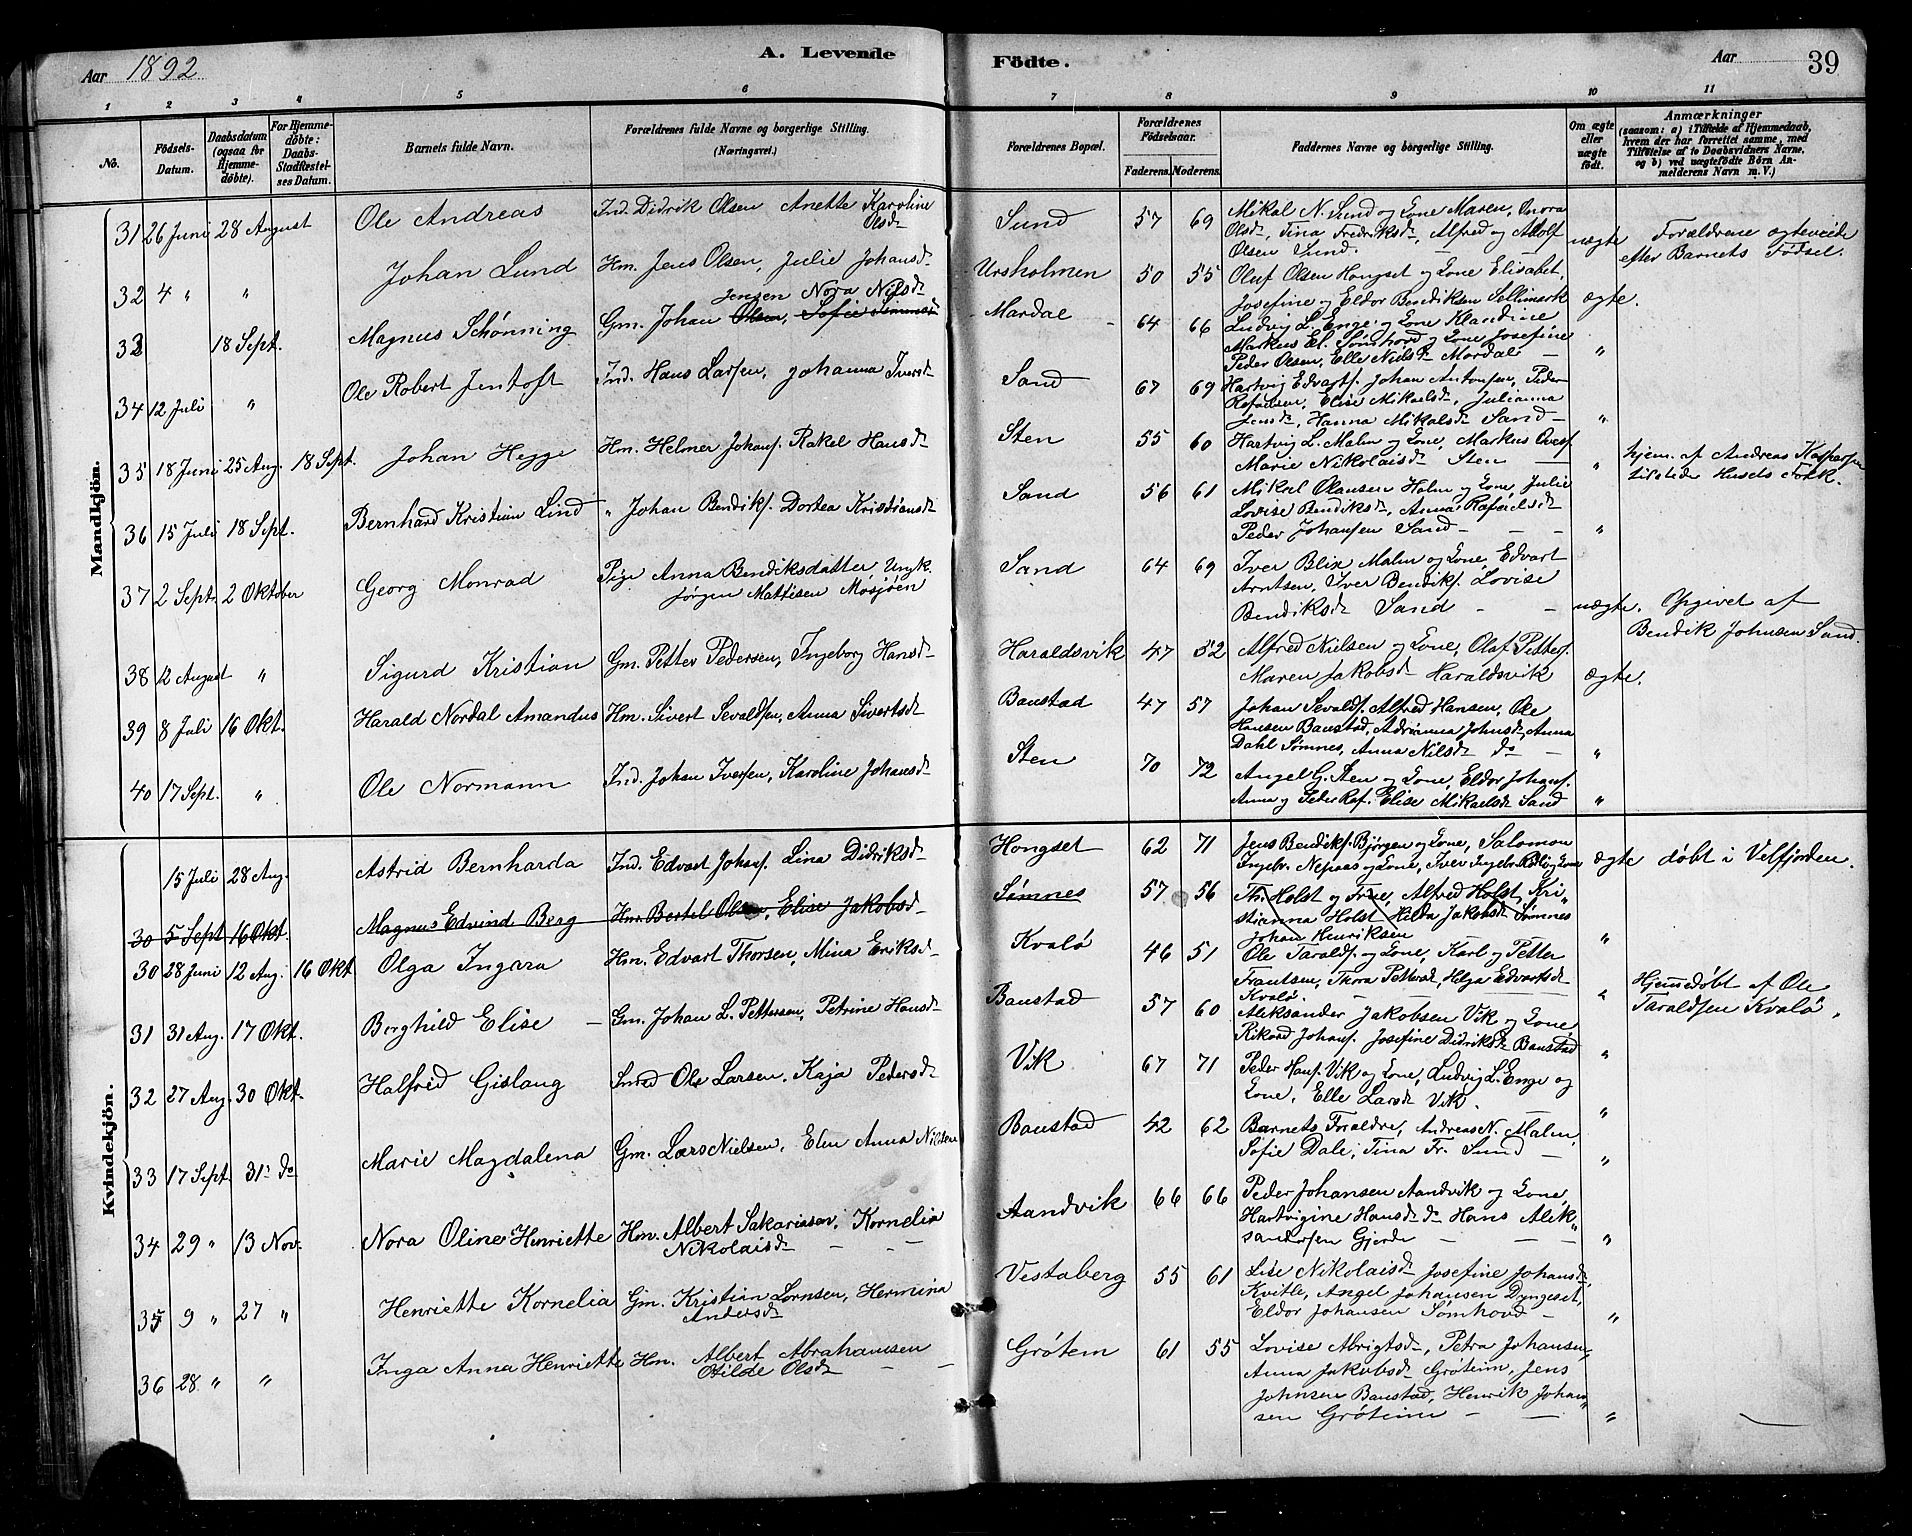 Aar 1892
A. Levende
Födte.
Aar
39
1 2 3 4 5 6 7 8 9 10 11
No.
Födsels-Datum.
Daabsdatum (ogsaa for Hjemme-döbte).
For Hjemme-döbte: Daabs-Stadfæstel-ses Datum.
Barnets fulde Navn.
Forældrenes fulde Navne og borgerlige Stilling. (Næringsvei.)
Forældrenes Bopæl.
Forældrenes Födselsaar. Faderens. Moderens.
Faddernes Navne og borgerlige Stilling.
Om ægte eller uægte födt.
Anmærkninger (saasom: a) i Tilfælde af Hjemmedaab, hvem der har forrettet samme, med Tilföielse af to Daabsvidners Navne, og b) ved uægtefödte Börn An-melderens Navn m. V.)
Mandkjön.
31 26 Juni 28 August Ole Andreas Ind. Didrik Olsen Anette Karoline Olsd. Sund 57 69 Mikal N. Sund og Kone Maren, Olsd., Tina Fredriksd., Alfred og Adolf Olsen Sund. uægte Forældrene ægteviede efter Barnets Födsel.
32 4 " " Johan Lund Hm. Jens Olsen, Julie Johansd. Ursholmen 50 55 Oluf Olsen Hongset og Kone Elisabet, Josefine og Eldor Bendiksen Sellimark ægte.
33 18 Sept. Magnus Schønning Gm. Johan Olsen, Sofie Jensen Nora Nilsd. Mardal 64 66 Ludvig L. Enge og Kone Klaudine Markus El. Sømhovd og Kone Josefine Peder Olsen, Elle Nilsd. Mardal "
34 12 Juli " Ole Robert Jentoft Ind. Hans Larsen, Johanna Iversd. Sand 67 69 Hartvig Edvarts. Johan Antonsen, Peder Rafaelsen, Elise Mikaelsd., Julianna Jensd., Hanna Mikalsd. Sand "
35 18 Juni 25 Aug. 18 Sept. Johan Hegge Hm. Helmer Johans. Rakel Hansd. Sten 55 60 Hartvig L. Malm og Kone, Markus Marie Nikolaisd. Sten " hjem. af Andreas Kaspersen tilstede Husets Folk.
36 15 Juli 18 Sept. Bernhard Kristian Lind " Johan Bendiks. Dortea Kristiansd. Sand 56 61 Mikal Olausen Holm og Kone, Julie Lovise Bendiksd., Anna Rafaelsd. Peder Johansen Sand "
37 2 Sept. 2 Oktober Georg Monrad Pige Anna Bendiksdatter Ungk. Jörgen Mattisen Mosjøen Sand 64 69 Iver Blix Malm og Kone Edvart Arntsen, Iver Bendiks. Lovise Bendiksd. Sand uægte. Opgivet af Bendik Johnsen Sand.
38 12 August " Sigurd Kristian Gm. Petter Pedersen, Ingeborg Hansd. Haraldsvik 47 52 Alfred Nielsen og Kone, Olaf Petters. Maren Jakobsd. Haraldsvik ægte.
39 8 Juli 16 Okt. Harald Nordal Amandus Hm. Sivert Sevaldsen, Anna Sivertsd. Baustad 47 57 Johan Sevalds. Alfred Hansen, Ole Hansen Baustad, Adrianna Johnsd., Anna Dahl Sømnes, Anna Nilsd. do "
40 17 Sept. " Ole Normann Ind. Johan Iversen, Karoline Johansd. Sten 70 72 Angel G. Sten og Kone, Eldor Johans. Anna og Peder Raf. Elise Mikaelsd. Sand "
Kvindekjön.
15 Juli 28 Aug. Astrid Bernharda Ind. Edvart Johans. Lina Didriksd. Hongset 62 71 Jens Bendiks. Bjørgen og Kone, Salomon Ingebr. Nepaas og Kone, Iver Ingebr. og Kone ægte döbt i Velfjorden.
30 5 Sept 16 Okt. Magnus Edvind Berg Hm. Bertel Olsen, Elise Jakobsd. Sømnes 57 56 Th. Holst og Frue, Alfred Holst, Kristianna Holst Hilda Jakobsd. Sømnes Johan Henriksen "
30 28 Juni 12 Aug. 16 Okt. Olga Ingara Hm. Edvart Thorsen, Mina Eriksd. Kvalö 46 51 Ole Taralds. og Kone, Karl og Petter Frantsen, Thora Pettersd., Helga Edvartsd. Kvalö. " Hjemmedöbt af Ole Taraldsen Kvalö.
31 31 Aug. 17 Okt. Borghild Elise Gm. Johan L. Pettersen, Petrine Hansd. Baustad 57 60 Aleksander Jakobsen Vik og Kone, Rikard Johans. Josefine Didriksd. Baustad "
32 27 Aug. 30 Okt. Halfred Gislaug Inred Ole Larsen, Kaja Pedersd. Vik 67 71 Peder Hans. Vik og Kone, Ludvig L. Enge og Kone, Elle Larsd. Vik. "
33 17 Sept. 31 do Marie Magdalena Gm. Lars Nielsen, Elen Anna Nilsen Baustad 42 62 Barnets Foraldre, Andreas N. Malm, Sofie Dale, Tina Fr. Sund "
34 29 " 13 Nov. Nora Oline Henriette Hm. Albert Sakariassen, Kornelia Nikolaisd. Aandvik 66 66 Peder Johansen Aandvik og Kone, Hartvigine Hansd. do Hans Alek-sandersen Gjerde "
35 9 " 27 " Henriette Kornelia Gm. Kristian Lornsen, Hermina Andersd. Vestaberg 55 61 Lise Nikolaisd. Josefine Johansd. Kvitle, Angel Johansen Dyngeset, Eldor Johansen Sømhovd "
36 28 " " Inga Anna Henriette Hm. Albert Abrahamsen Otilde Olsd. Grøtem 61 55 Lovise Abrigtsd., Petra Johansen, Anna Jakobsd. Grøteim, Jens Johnsen Baustad, Henrik Johan-sen Grøteim "